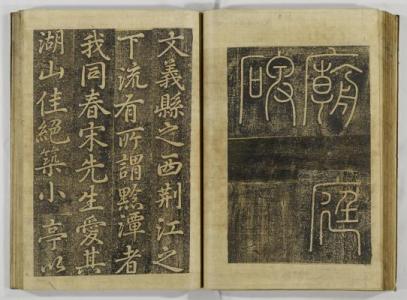 廟庭
碑
文義縣之西荊江之
下流有所謂黔潭者
我同春宋先生愛其
湖山佳絕築小亭以